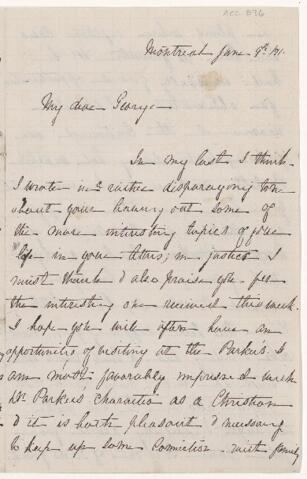 ACC-876
Montreal June 5th /71.
My dear George
In my last I think
I wrote in rather disparaging tone
about your leaving out some of
the more interesting topics of your
life in your letters; in justice I
must thank & also praise you for
the interesting one received this week.
I hope you will often have an
opportunities of visiting at the Parkers. I
am most favorably impressed with
Dr Parkers character as a Christian
& it is both pleasant & necessary
to keep up some connection with family